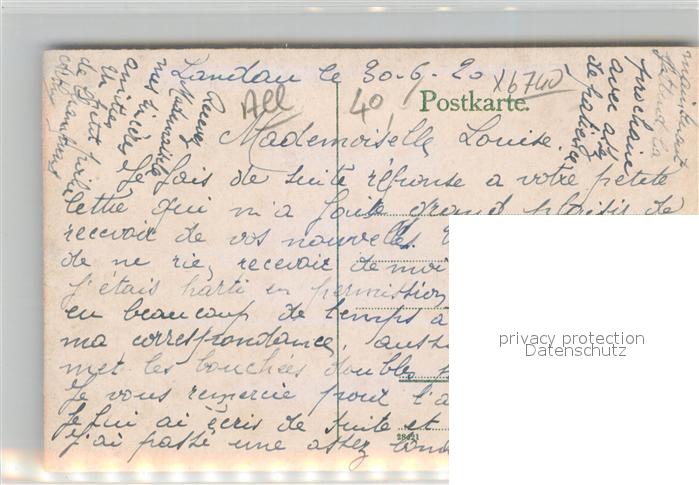 Landau le 30-6-20
All 40 X6740
Postkarte.
Mademoiselle Louise.
Je fais de suite réponse a votre petite
lettre qui m'a fait grand plaisir de
recevoir de vos nouvelles.
de ne rien recevoir de moi
j'étais parti en permission
en beaucoup de temps a
ma correspondance, aussi
met les bouchées doubles
Je vous remercie pour l'a
Je lui ai écris de suite et
j'ai passé une assez bonne
28421
maintenant
prochaine
avec
de
Recevez
Mademoiselle
mes
amitiés
Un
de
privacy protection
Datenschutz